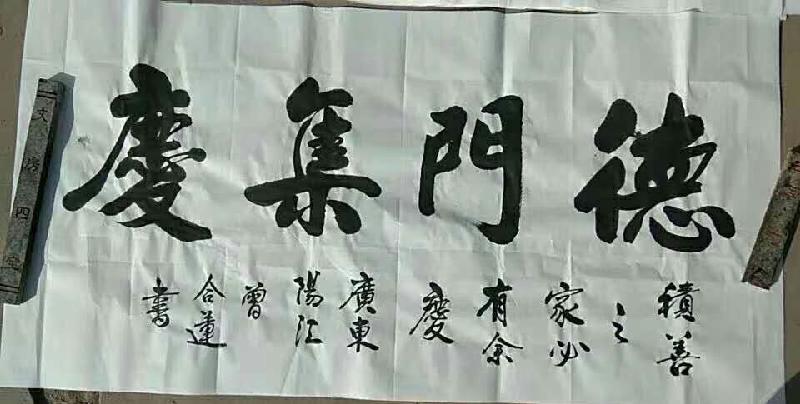 德門集慶
積善
之
家必
有余
慶
廣東
陽江
曾
合蓮
書